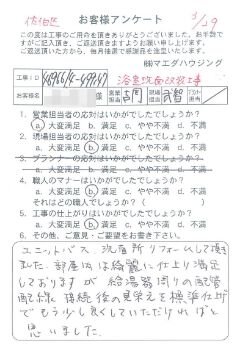 佐伯区 お客様アンケート 3/29
この度は工事のご用命を頂きありがとうございました。お手数で
すがご記入頂き、ご返送頂きますようお願い申し上げます。
ご返送頂いた方から、毎月抽選で感謝品を進呈いたします。
㈱マエダハウジング
工事ID 浴室洗面改装工事
お客様名 様 営業担当 現場担当
1. 営業担当者の応対はいかがでしたでしょうか?
a. 大変満足 b. 満足 c. やや不満 d. 不満
2. 現場担当者の応対はいかがでしたでしょうか?
a. 大変満足 b. 満足 c. やや不満 d. 不満
3. プランナーの応対はいかがでしたでしょうか?
a. 大変満足 b. 満足 c. やや不満 d. 不満
4. 職人のマナーはいかがでしたでしょうか?
a. 大変満足 b. 満足 c. やや不満 d. 不満
それはどの職人でしょうか?( )
5. 工事の仕上がりはいかがでしたでしょうか?
a. 大変満足 b. 満足 c. やや不満 d. 不満
6. その他、ご意見・ご要望をお書き下さい。
ユニットバス、洗面所リフォームして頂き
ました。部屋内は綺麗に仕上り満足
しておりますが 給湯器周りの配管
配線 接続後の見栄えを標準仕上げ
でもう少し良くしていただければと
思いました。